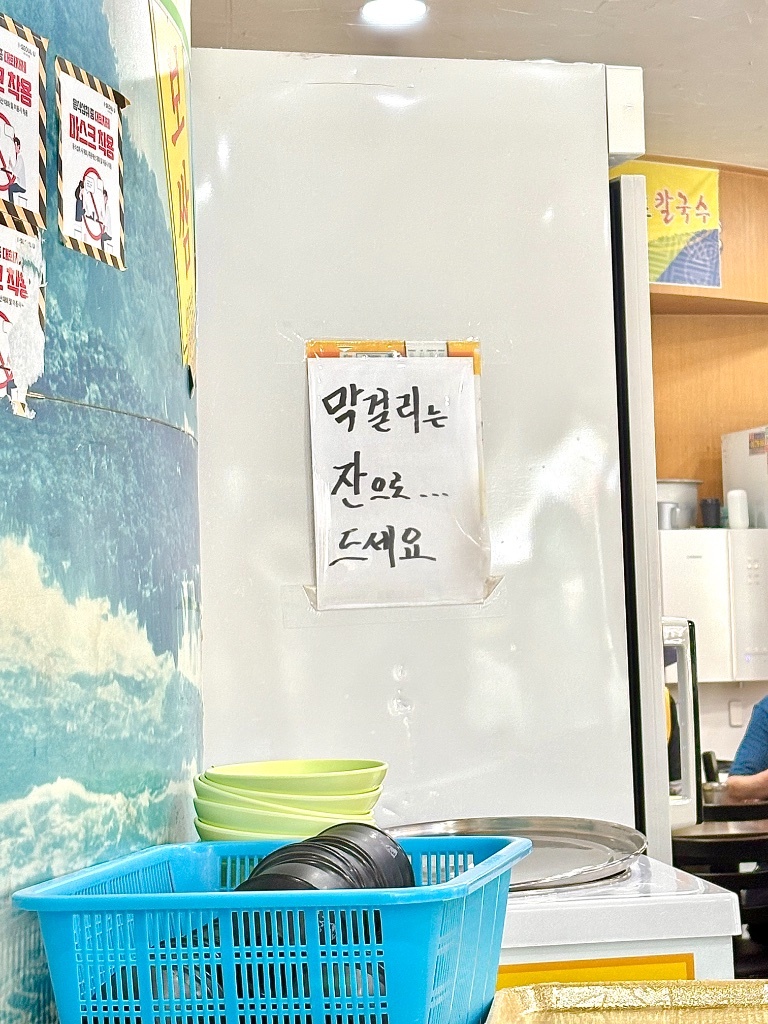 마스크 착용
보쌈
칼국수
막걸리는
잔으로...
드세요